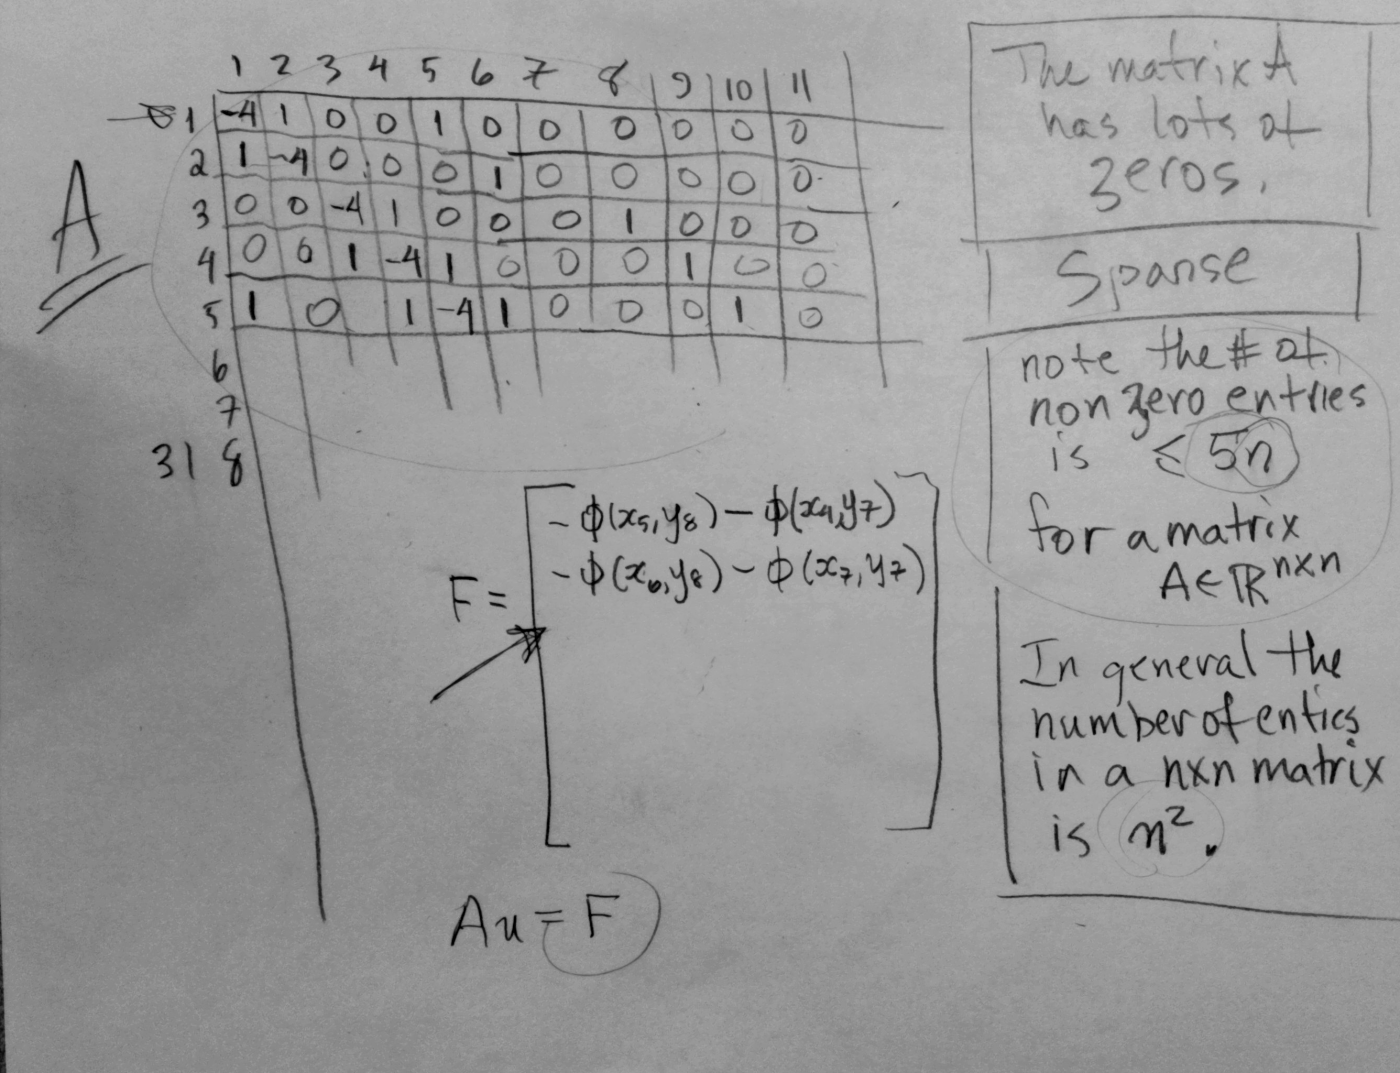 1 2 3 4 5 6 7 8 9 10 11
1 -4 1 0 0 1 0 0 0 0 0 0
2 1 -4 0 0 0 1 0 0 0 0 0
3 0 0 -4 1 0 0 0 1 0 0 0
4 0 0 1 -4 1 0 0 0 1 0 0
5 1 0 1 -4 1 0 0 0 1 0
6
7
31 8
A
F =
- φ(x₅,y₈) - φ(x₄,y₇)
- φ(x₆,y₈) - φ(x₇,y₇)
Au = F
The matrix A
has lots of
zeros.
Sparse
note the # of
non zero entries
is ≤ 5n
for a matrix
A ∈ ℝⁿˣⁿ
In general the
number of enties
in a nxn matrix
is n².